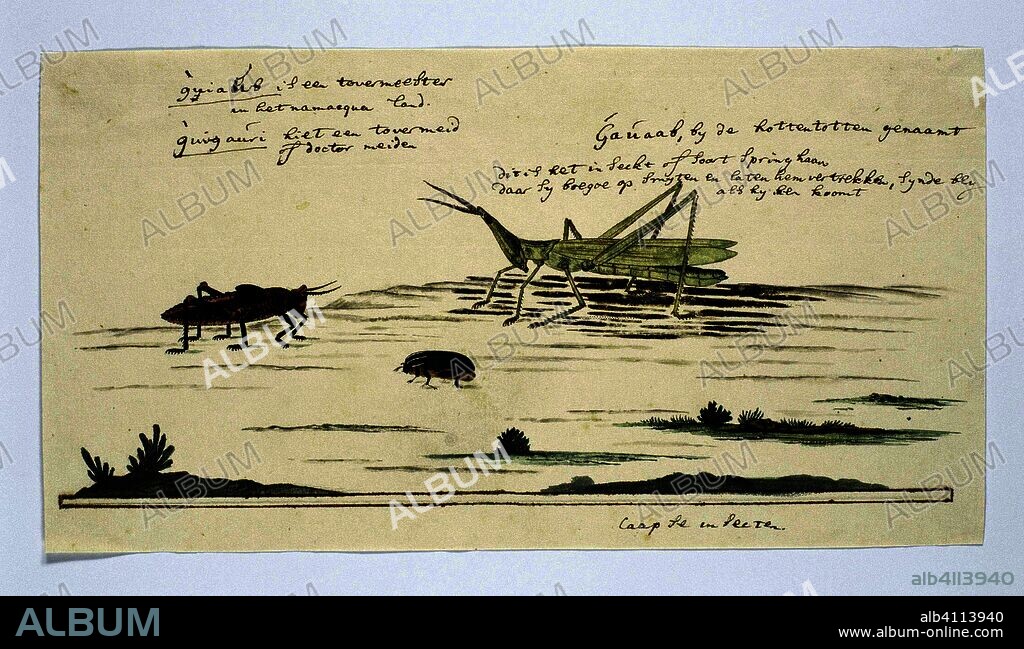 gʉiaʉb is een tovermeester
in het namacqua land.
gʉig aúri hiet een tovermeid
of doctor meiden
Gaúaab, by de hottentotten genaamt
dit is het inseckt of soort springhaan
daar sy boegoe op struyten en laten hem vertrekken, synde bly
als hy ken koomt
Caap se insecten.
ALBUM
alb4113940
ALBUM
alb4113940
www.album-online.com